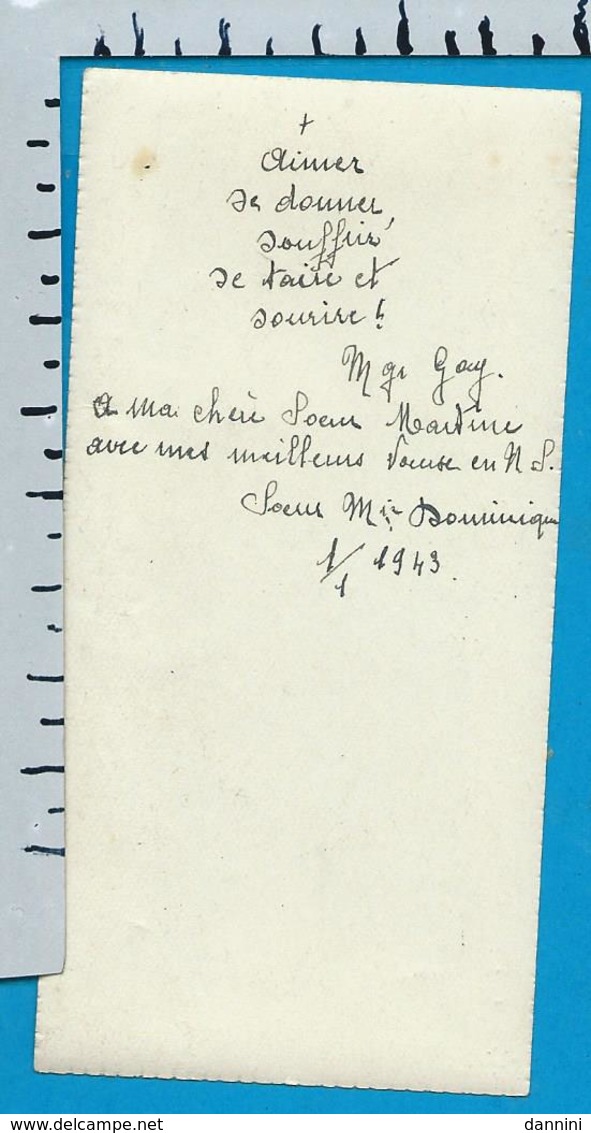 +
Aimer
se donner,
souffrir
se taire et
sourire !
Mgr Gay.
A ma chère Soeur Martine
avec mes meilleurs voeux en N. S.
Soeur Mie Dominique
1/1 1943.
dannini